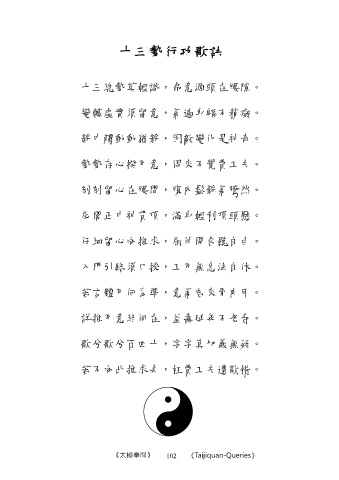 十三勢行功歌訣
十三總勢莫輕識，命意源頭在腰隙。
變轉虛實須留意，氣遍身軀不稍癡。
靜中觸動動猶靜，因敵變化是神奇。
勢勢存心揆用意，得來不覺費工夫。
刻刻留心在腰間，腹內鬆靜氣騰然。
尾閭正中神貫頂，滿身輕利頂頭懸。
仔細留心向推求，屈伸開合聽自由。
入門引路須口授，工用無息法自休。
若言體用何為準，意氣君來骨肉臣。
詳推用意終何在，益壽延年不老春。
歌兮歌兮百四十，字字真切義無疑。
若不向此推求去，枉費工夫遺歎惜。
《太極拳問》 102 《Taijiquan-Queries》